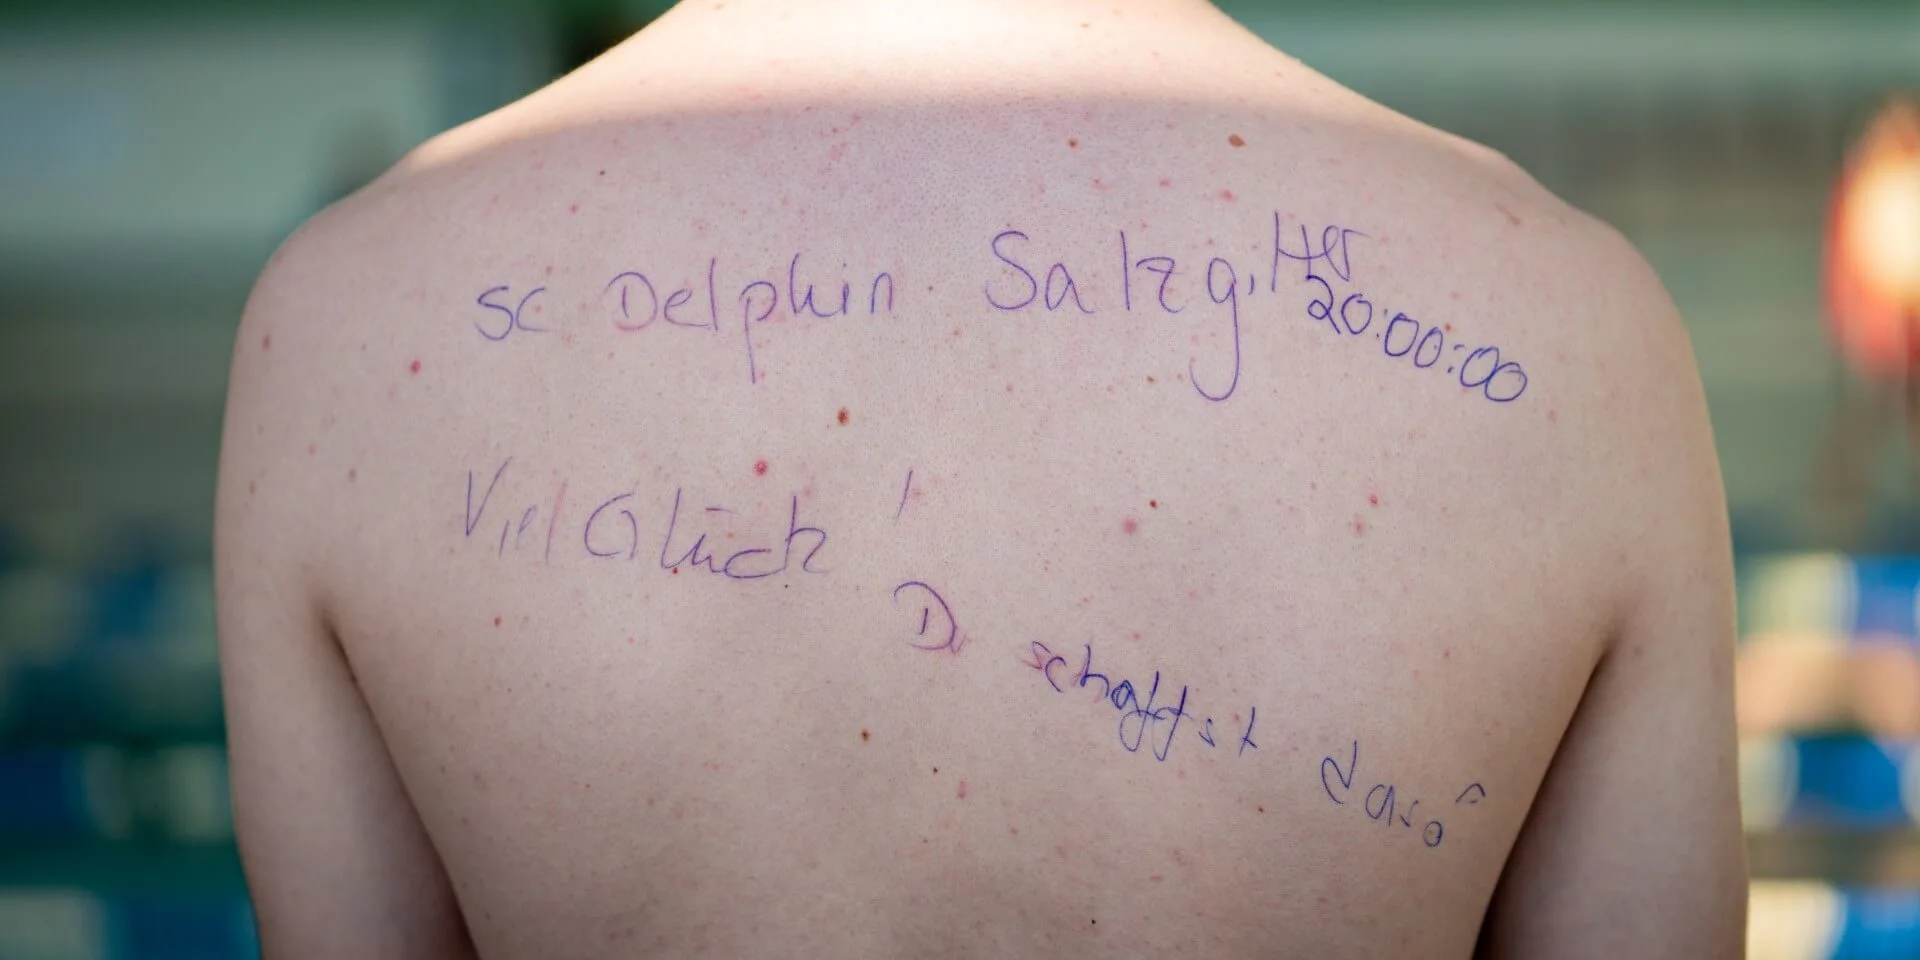 SC Delphin Salzgitter
20:00:00
Viel Glück!
Du schaffst das